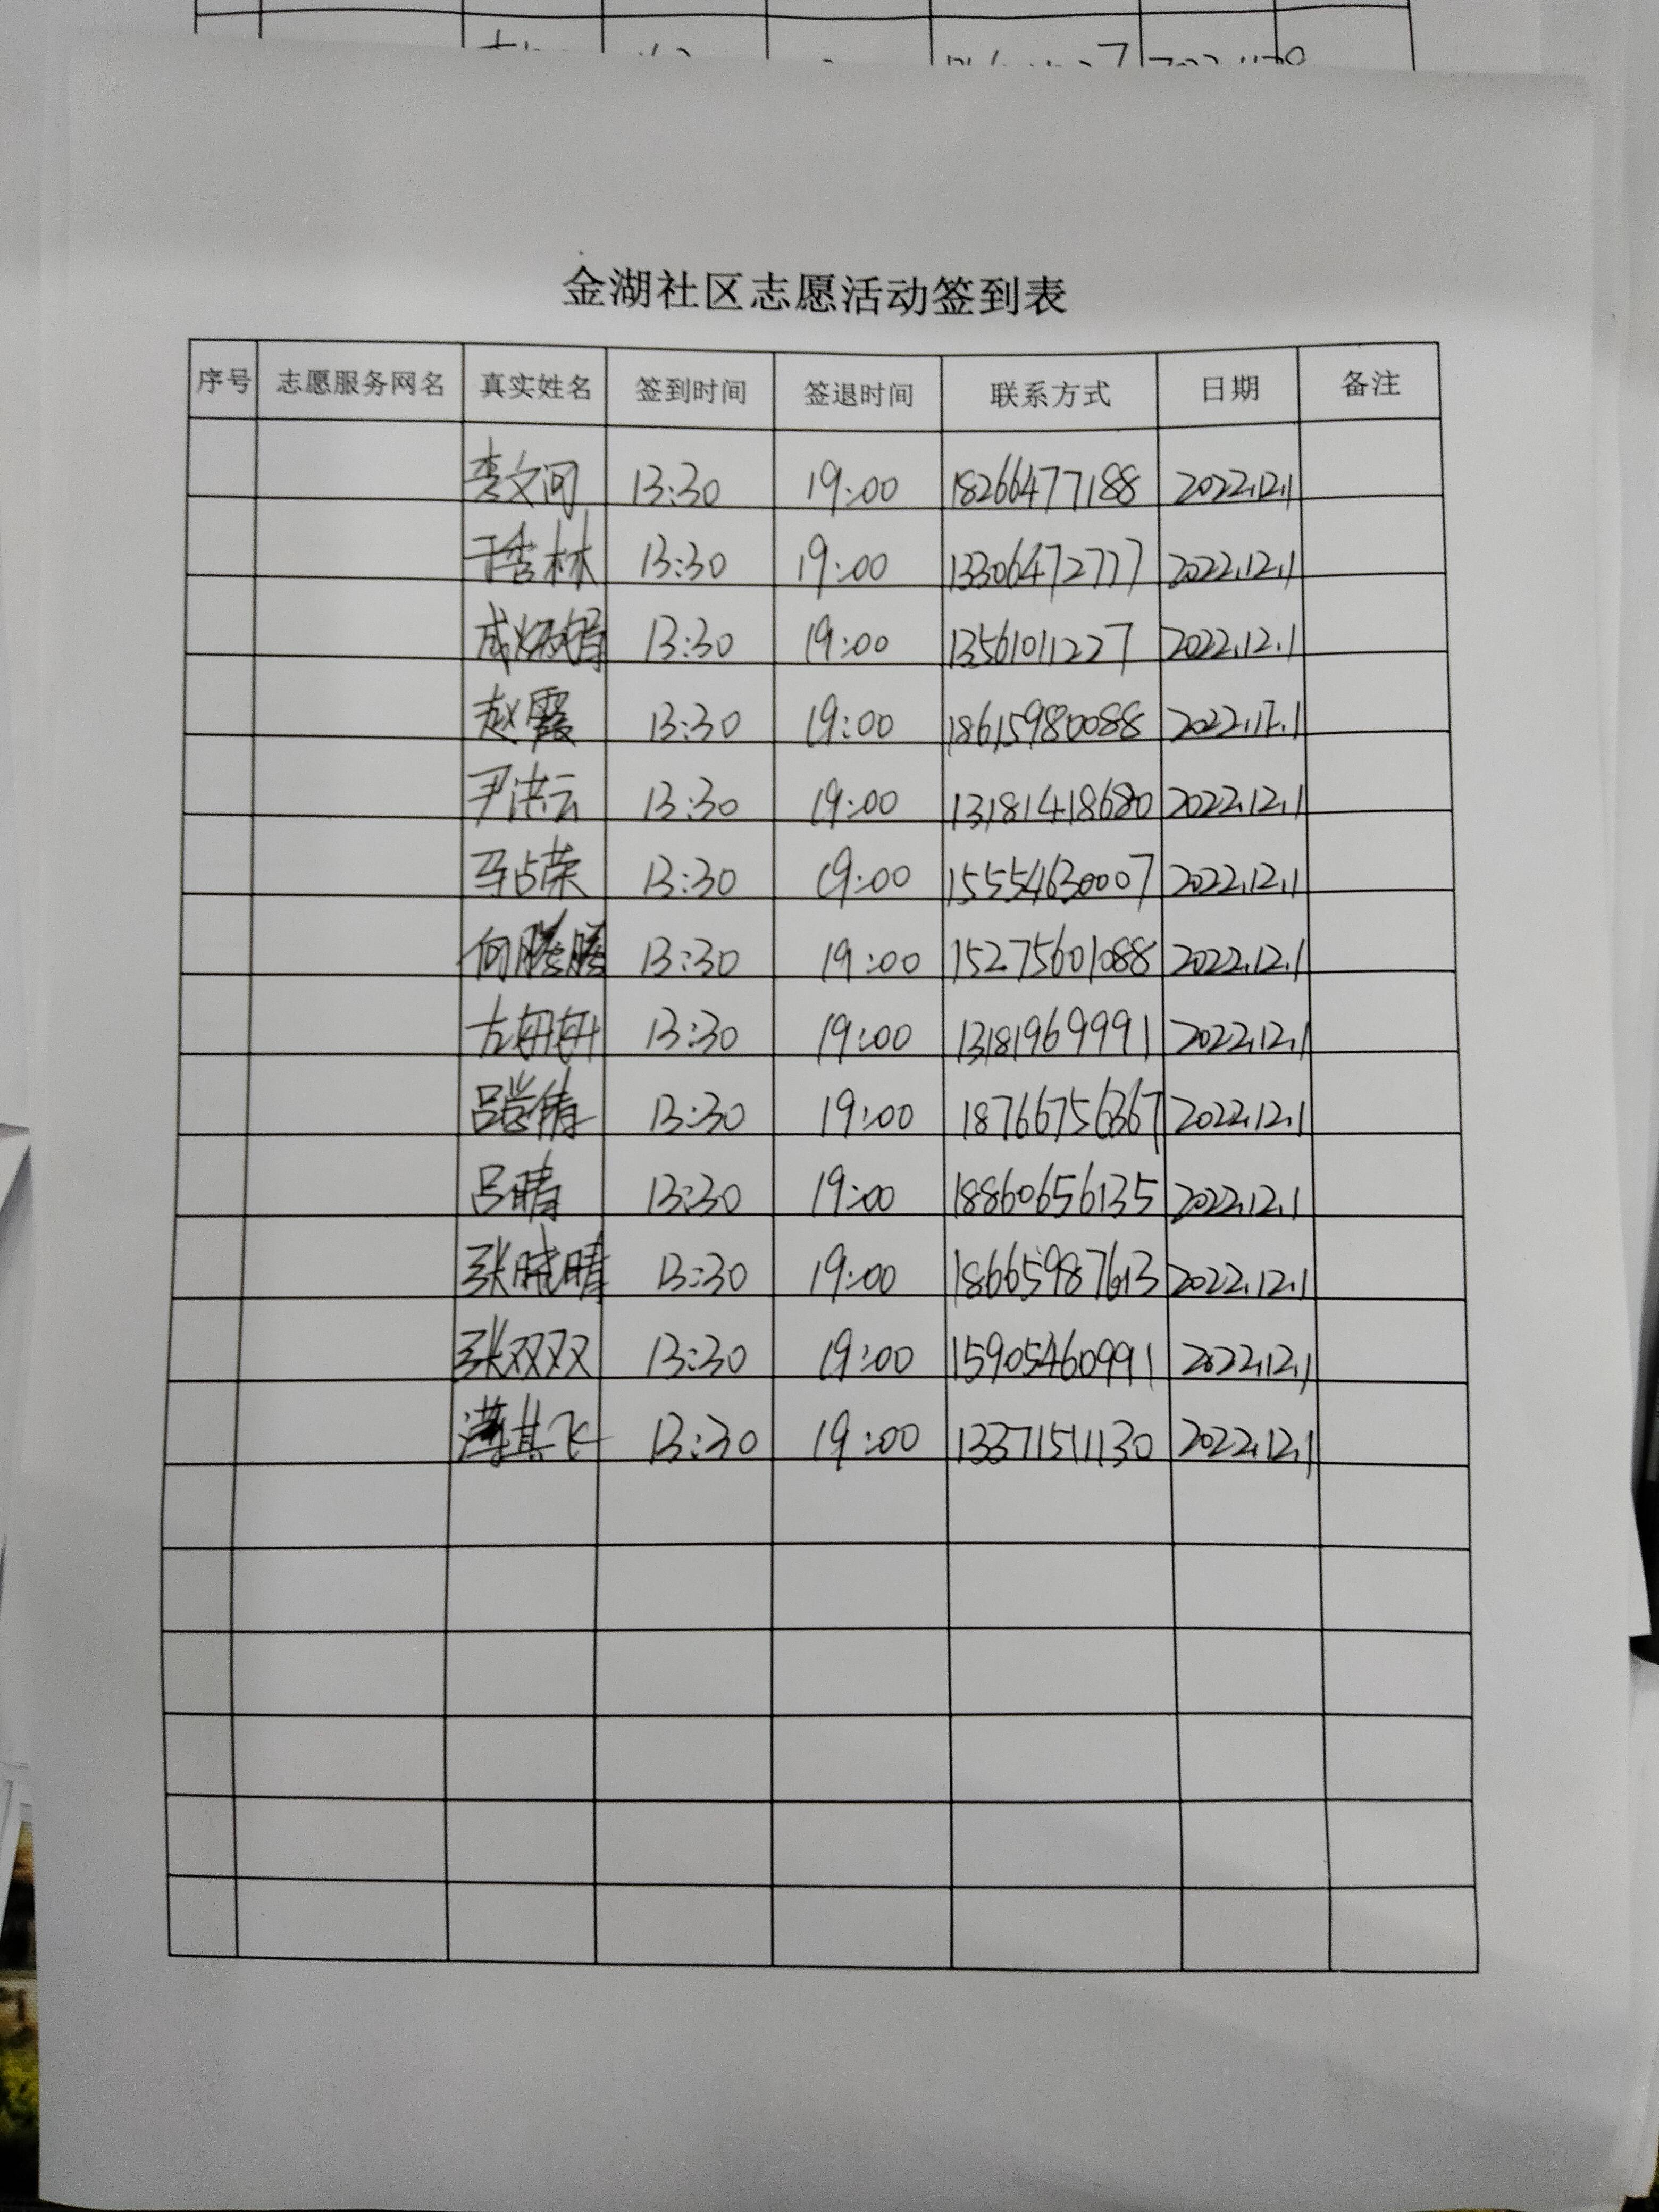 金湖社区志愿活动签到表
序号 志愿服务网名 真实姓名 签到时间 签退时间 联系方式 日期 备注
李文河 13:30 19:00 18266477188 2022.12.1
于杏林 13:30 19:00 13306472777 2022.12.1
成炳娟 13:30 19:00 13561011227 2022.12.1
赵霞 13:30 19:00 18615980088 2022.12.1
尹洪云 13:30 19:00 13181418680 2022.12.1
马占荣 13:30 19:00 15554630007 2022.12.1
向腾腾 13:30 19:00 15275601088 2022.12.1
左妍妍 13:30 19:00 13181969991 2022.12.1
吕学倩 13:30 19:00 18766756367 2022.12.1
吕晴 13:30 19:00 18860656135 2022.12.1
张晓晴 13:30 19:00 18665987613 2022.12.1
张双双 13:30 19:00 15905460991 2022.12.1
薄其飞 13:30 19:00 13371511130 2022.12.1